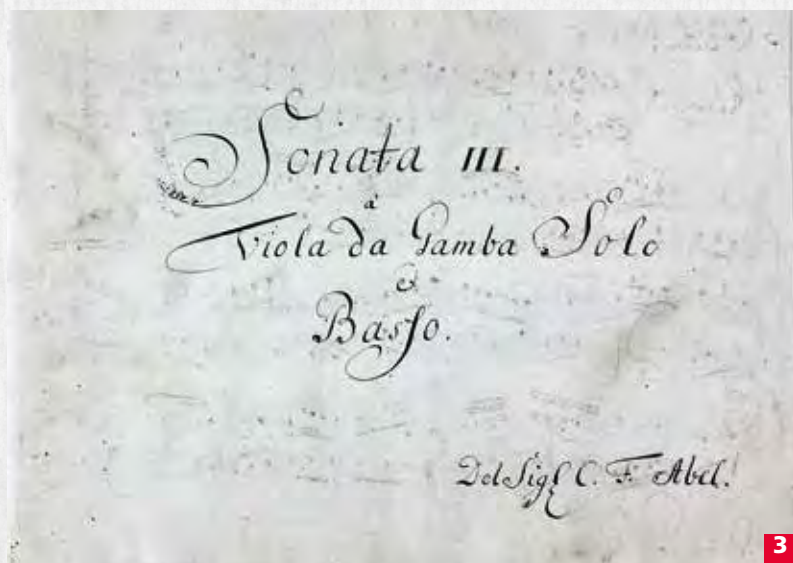 Sonata III.
à
Viola da Gamba Solo
è
Basso.
Del Sigl C. F. Abel.
3